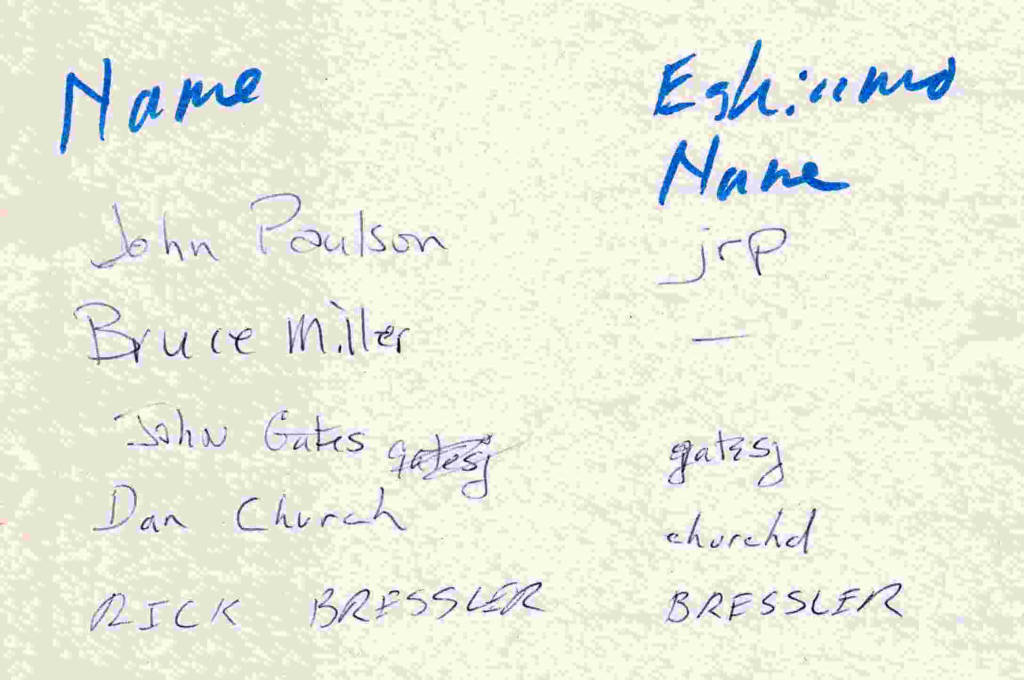 Name Eskimo
Name
John Paulson jrp
Bruce Miller —
John Gates gatesj gatesj
Dan Church churchd
RICK BRESSLER BRESSLER